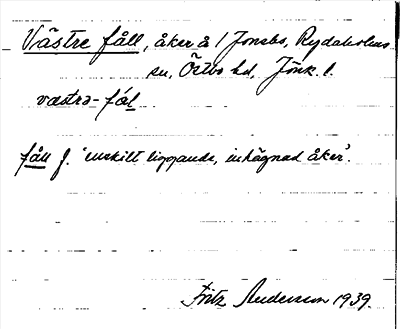 Västre fåll, åker å 1 Jonsbo, Rydaholms
sn, Östbo hd, Jönk. l.
västrə-fål
fåll f. 'enskilt liggande, inhägnad åker'.
Fritz Anderson 1939.